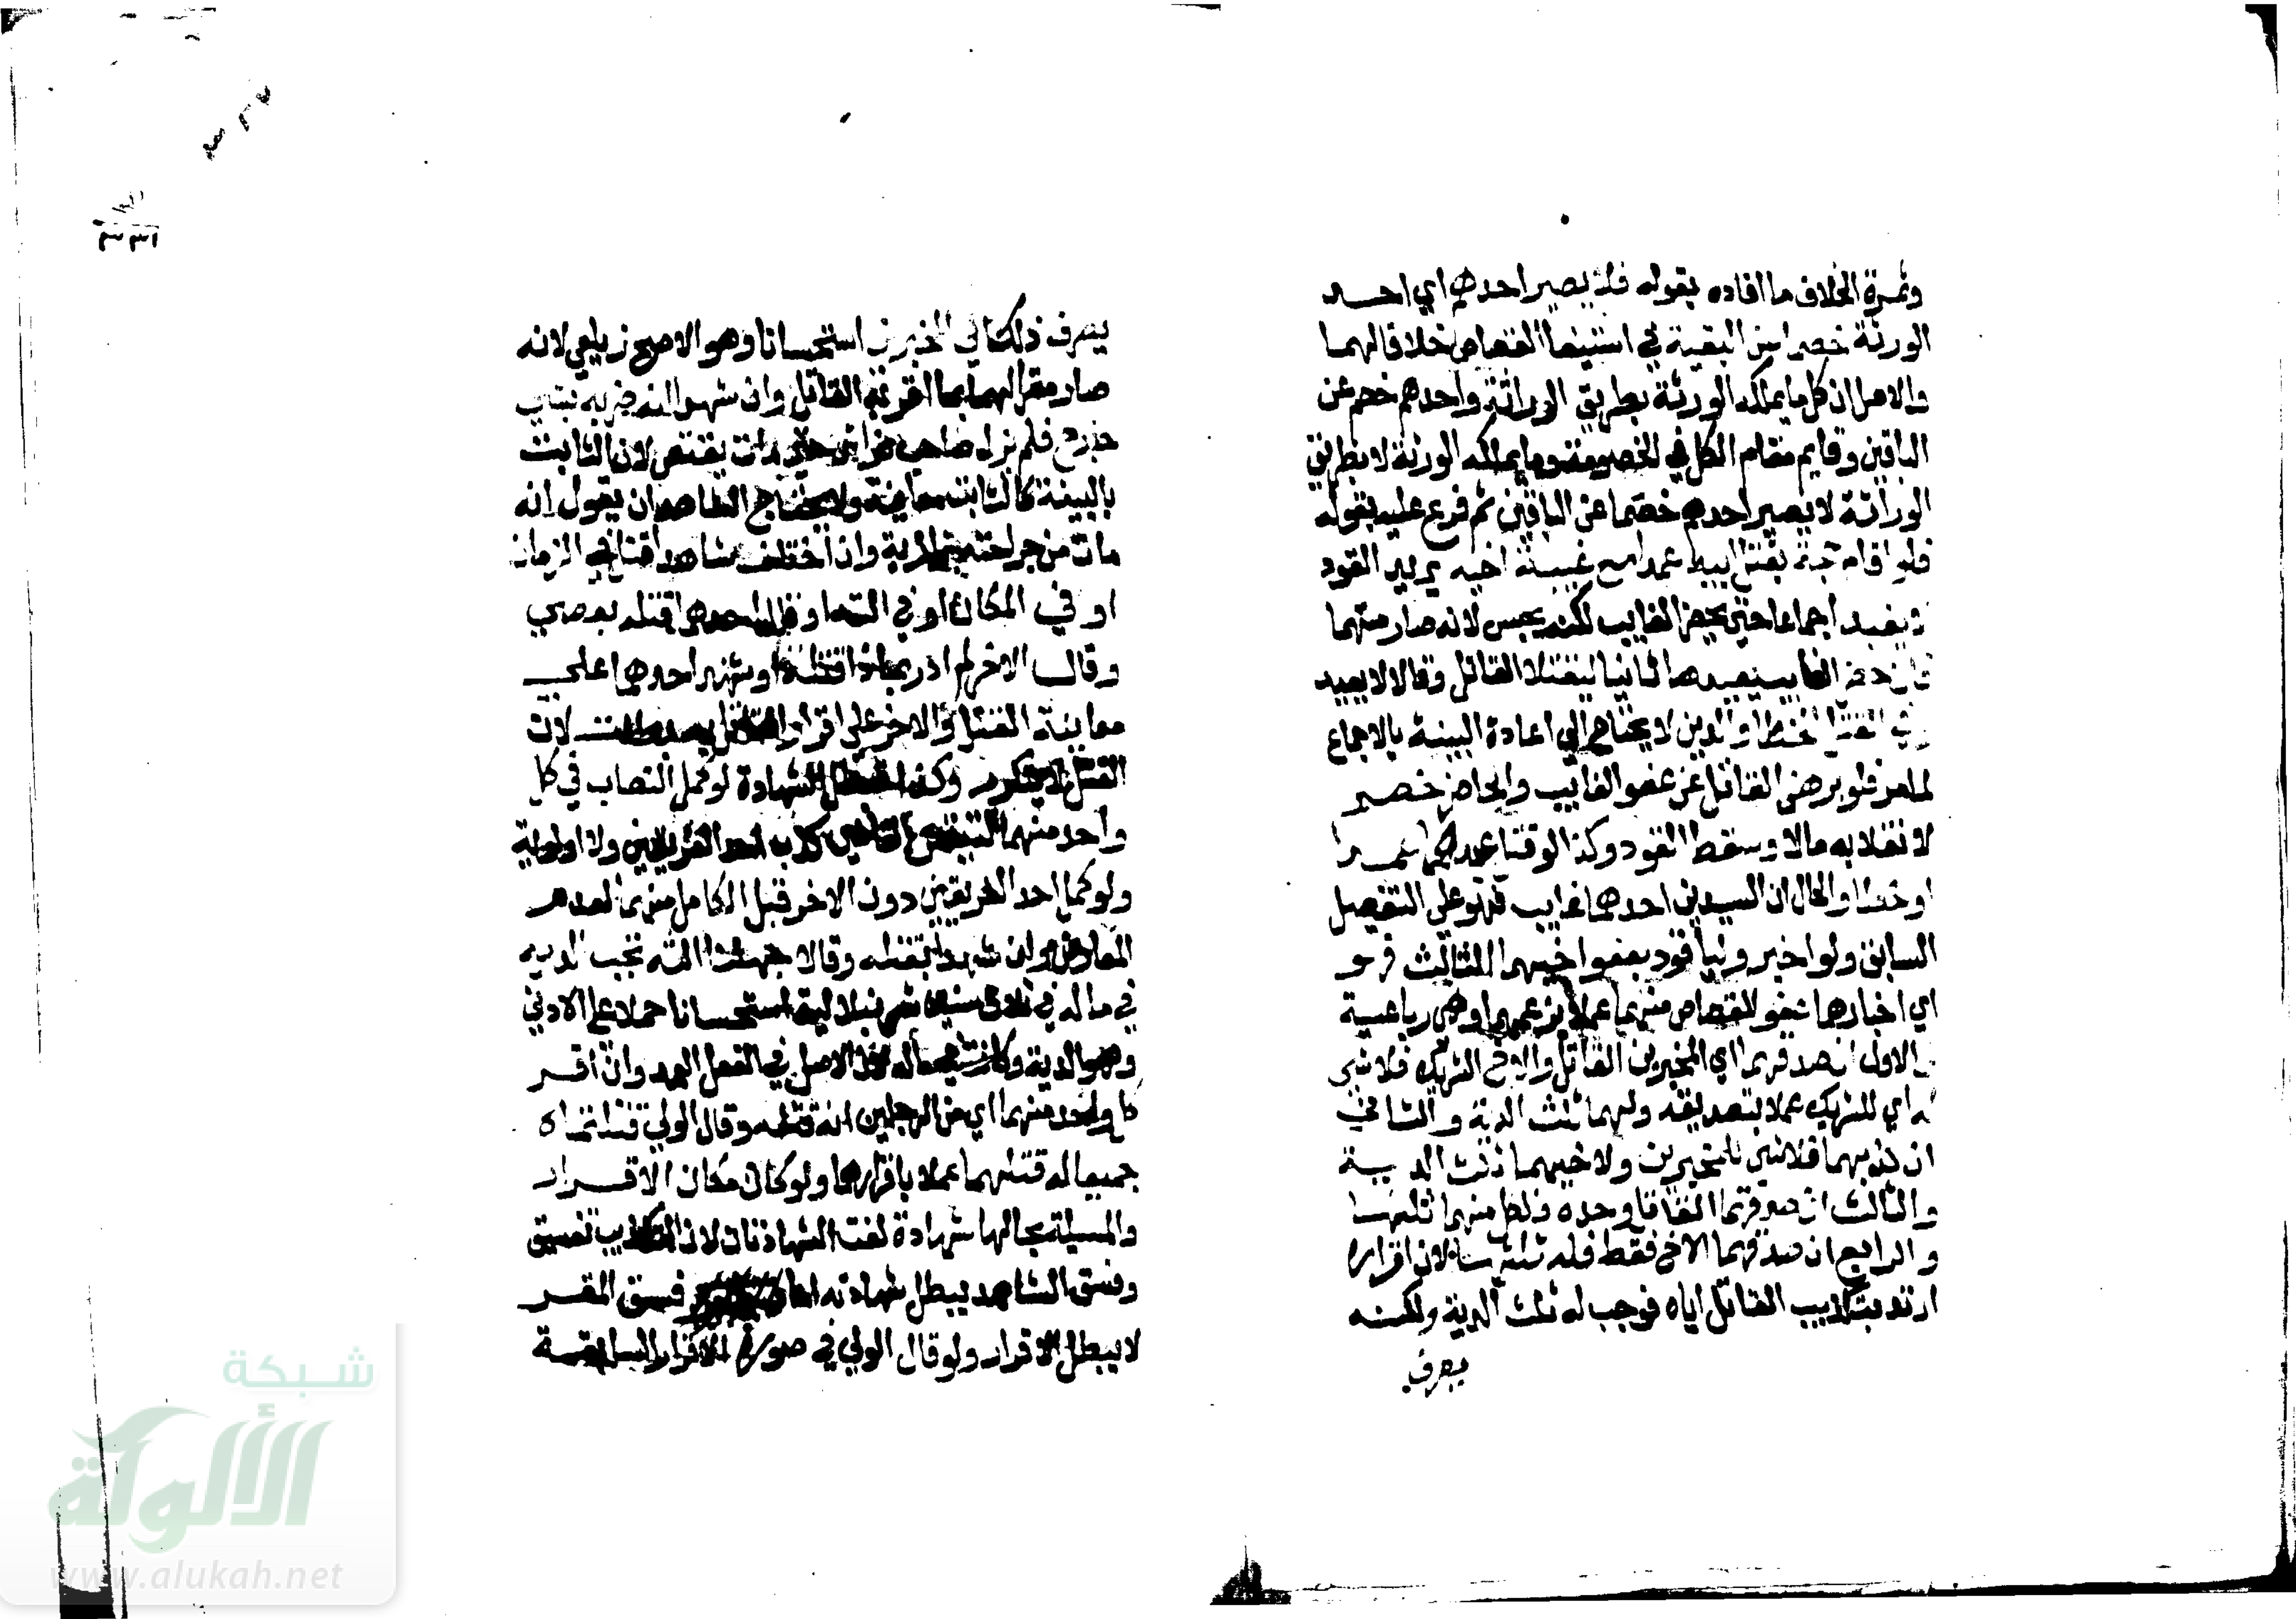 وثمرة الخلاف ما افاده بقوله فلا يصير احدهم اي احد
الورثة خصما عن البقية في استيفا القصاص خلافا لهما
والاصل ان كل ما يملكه الورثة بطريق الوراثة واحدهم خصم عن
الباقين وقايم مقام الكل في الخصومة وما يملكه الورثة لا بطريق
الوراثة لا يصير احدهم خصما عن الباقين ثم فرع عليه بقوله
فلو اقام حجة بقتل ابيه عمدا مع غيبة اخيه يريد القود
لا يقيد اجماعا حتى يحضر الغايب لكنه يحبس لانه صار متهما
فان حضر الغايب يعيدها ثانيا ليقتلا القاتل وقالا لا يعيد
وفي القتل الخطا والدين لا يحتاج الي اعادة البينة بالاجماع
لما مر فلو برهن القاتل عن عفو الغايب والحاضر خصم
لانقلابه مالا وسقط القود وكذا لو قتل عبدهما عمدا
او خطا والحال ان السيدين احدهما غايب فهو علي التفصيل
السابق ولو اخبر وليا قود بعفو اخيهما الثالث فهو
اي اخبارهما عفو للقصاص منهما عملا بزعمهما وهي رباعية
فالاول ان صدقهما اي المخبرين القاتل والاخ الشريك فلا شي
له اي للشريك عملا بتصديقه ولهما ثلث الدية والثاني
ان كذبهما فلا شي للمخبرين ولاخيهما ثلث الدية
والثالث ان صدقهما القاتل وحده فلكل منهما ثلثها
والرابع ان صدقهما الاخ فقط فله ثلثها لان اقراره
ارتد بتكذيب القاتل اياه فوجب له ثلث الدية ولكنه
يصرف
يصرف ذلك الي المخبرين استحسانا وهو الاصح زيلعي لانه
صار مقرا لهما بما اقر به القاتل وان شهدا انه ضربه بشي
جارح فلم يزل صاحب فراش حتى مات يقتص لان الثابت
بالبينة كالثابت معاينة ولا يحتاج الشاهد ان يقول انه
مات من جراحته بزازية وان اختلف شاهدا قتل في الزمان
او في المكان او في الته او قال احدهما قتله بعصي
وقال الاخر لم ادر بماذا قتله او شهد احدهما علي
معاينة القتل والاخر علي اقرار القاتل به بطلت لان
القتل لا يتكرر وكذا تبطل الشهادة لو كمل النصاب في كل
واحد منهما لتيقن القاضي بكذب احد الفريقين ولا اولوية
ولو كمل احد الفريقين دون الاخر قبل الكامل منهما لعدم
المعارض وان شهدا بقتله وقالا جهلنا الته تجب الدية
في ماله في ثلاث سنين شرنبلالية استحسانا حملا علي الادني
وهو الدية وكانت في ماله لان الاصل في الفعل العمد وان اقر
كل واحد منهما اي من الرجلين انه قتله وقال الولي قتلتماه
جميعا له قتلهما عملا باقرارهما ولو كان مكان الاقرار
والمسيلة بحالها شهادة لغت الشهادتان لان التكذيب تفسيق
وفسق الشاهد يبطل شهادته اما فسق المقر
لا يبطل الاقرار ولو قال الولي في صورة الاقرار السابقة
شبكة
الألوكة
www.alukah.net